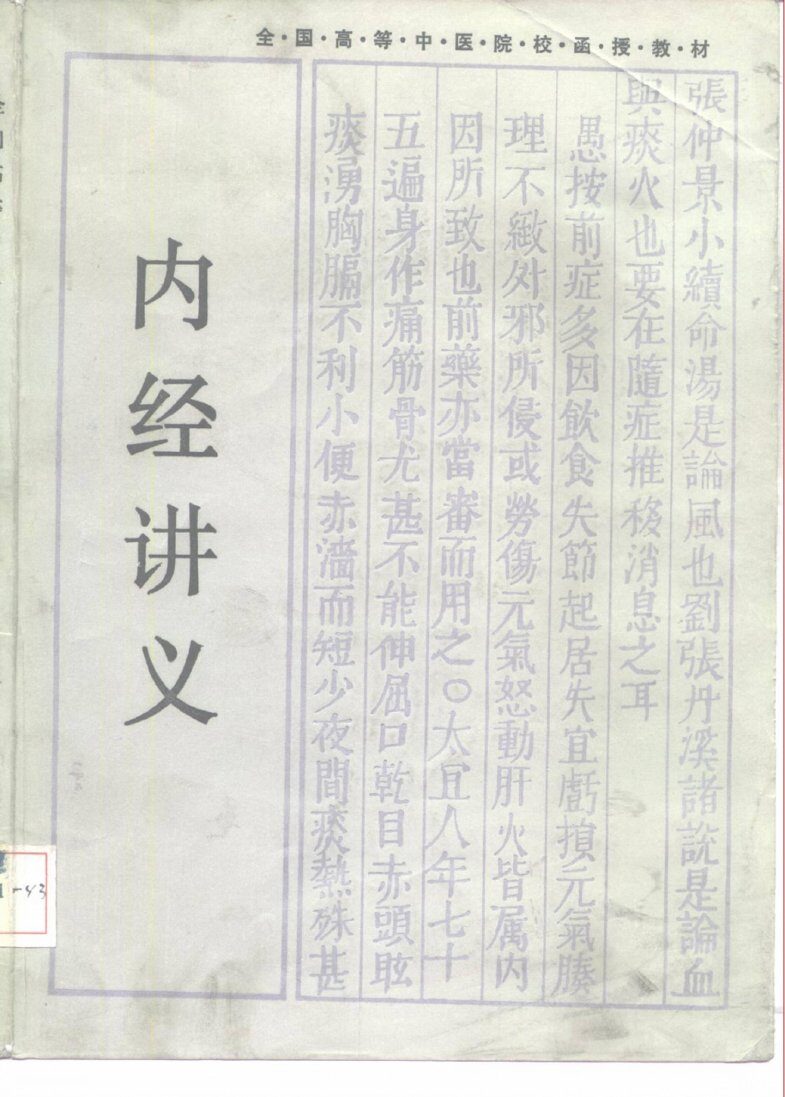 全·国·高·等·中·医·院·校·函·授·教·材
張仲景小續命湯是論風也劉張丹溪諸說是論血
與痰火也要在隨症推移消息之耳
愚按前症多因飲食失節起居失宜虧損元氣腠
理不緻外邪所侵或勞傷元氣怒動肝火皆属内
因所致也前藥亦當審而用之○太宜人年七十
五遍身作痛筋骨尤甚不能伸屈口乾目赤頭眩
痰湧胸膈不利小便赤濇而短少夜間痰熱殊甚
内经讲义
-43